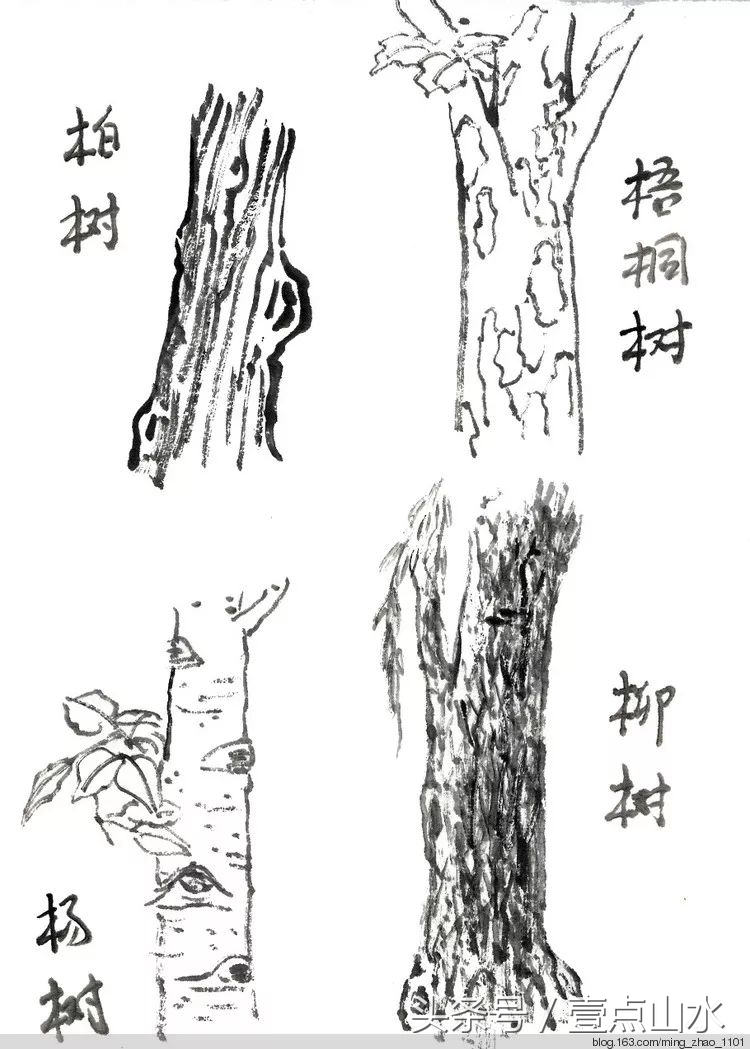 柏树
梧桐树
杨树
柳树
头条号／壹点山水
blog.163.com/ming_zhao_1101